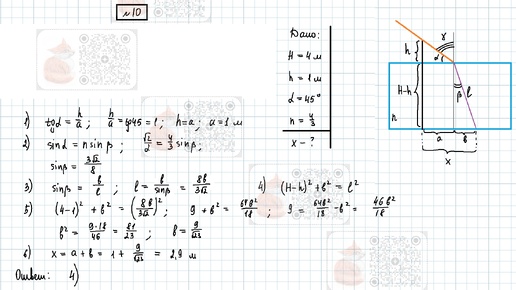 №10
Дано:
H = 4 м
h = 1 м
α = 45°
n = 4/3
x - ?
1) tgα = h/a ; h/a = tg45 = 1 ; h = a ; a = 1 м
2) sinα = n sinβ ; √2/2 = 4/3 sinβ ;
sinβ = 3√2/8
3) sinβ = b/l ; l = b/sinβ = 8b/3√2
4) (H-h)² + b² = l²
5) (4-1)² + b² = (8b/3√2)² ; 9 + b² = 64b²/18 ; 9 = 64b²/18 - b² = 46b²/18
b² = 9·18/46 = 81/23 ; b = 9/√23
6) x = a + b = 1 + 9/√23 = 2,9 м
Ответ: 4)
h
H-h
n
γ
α
β
l
a
b
x